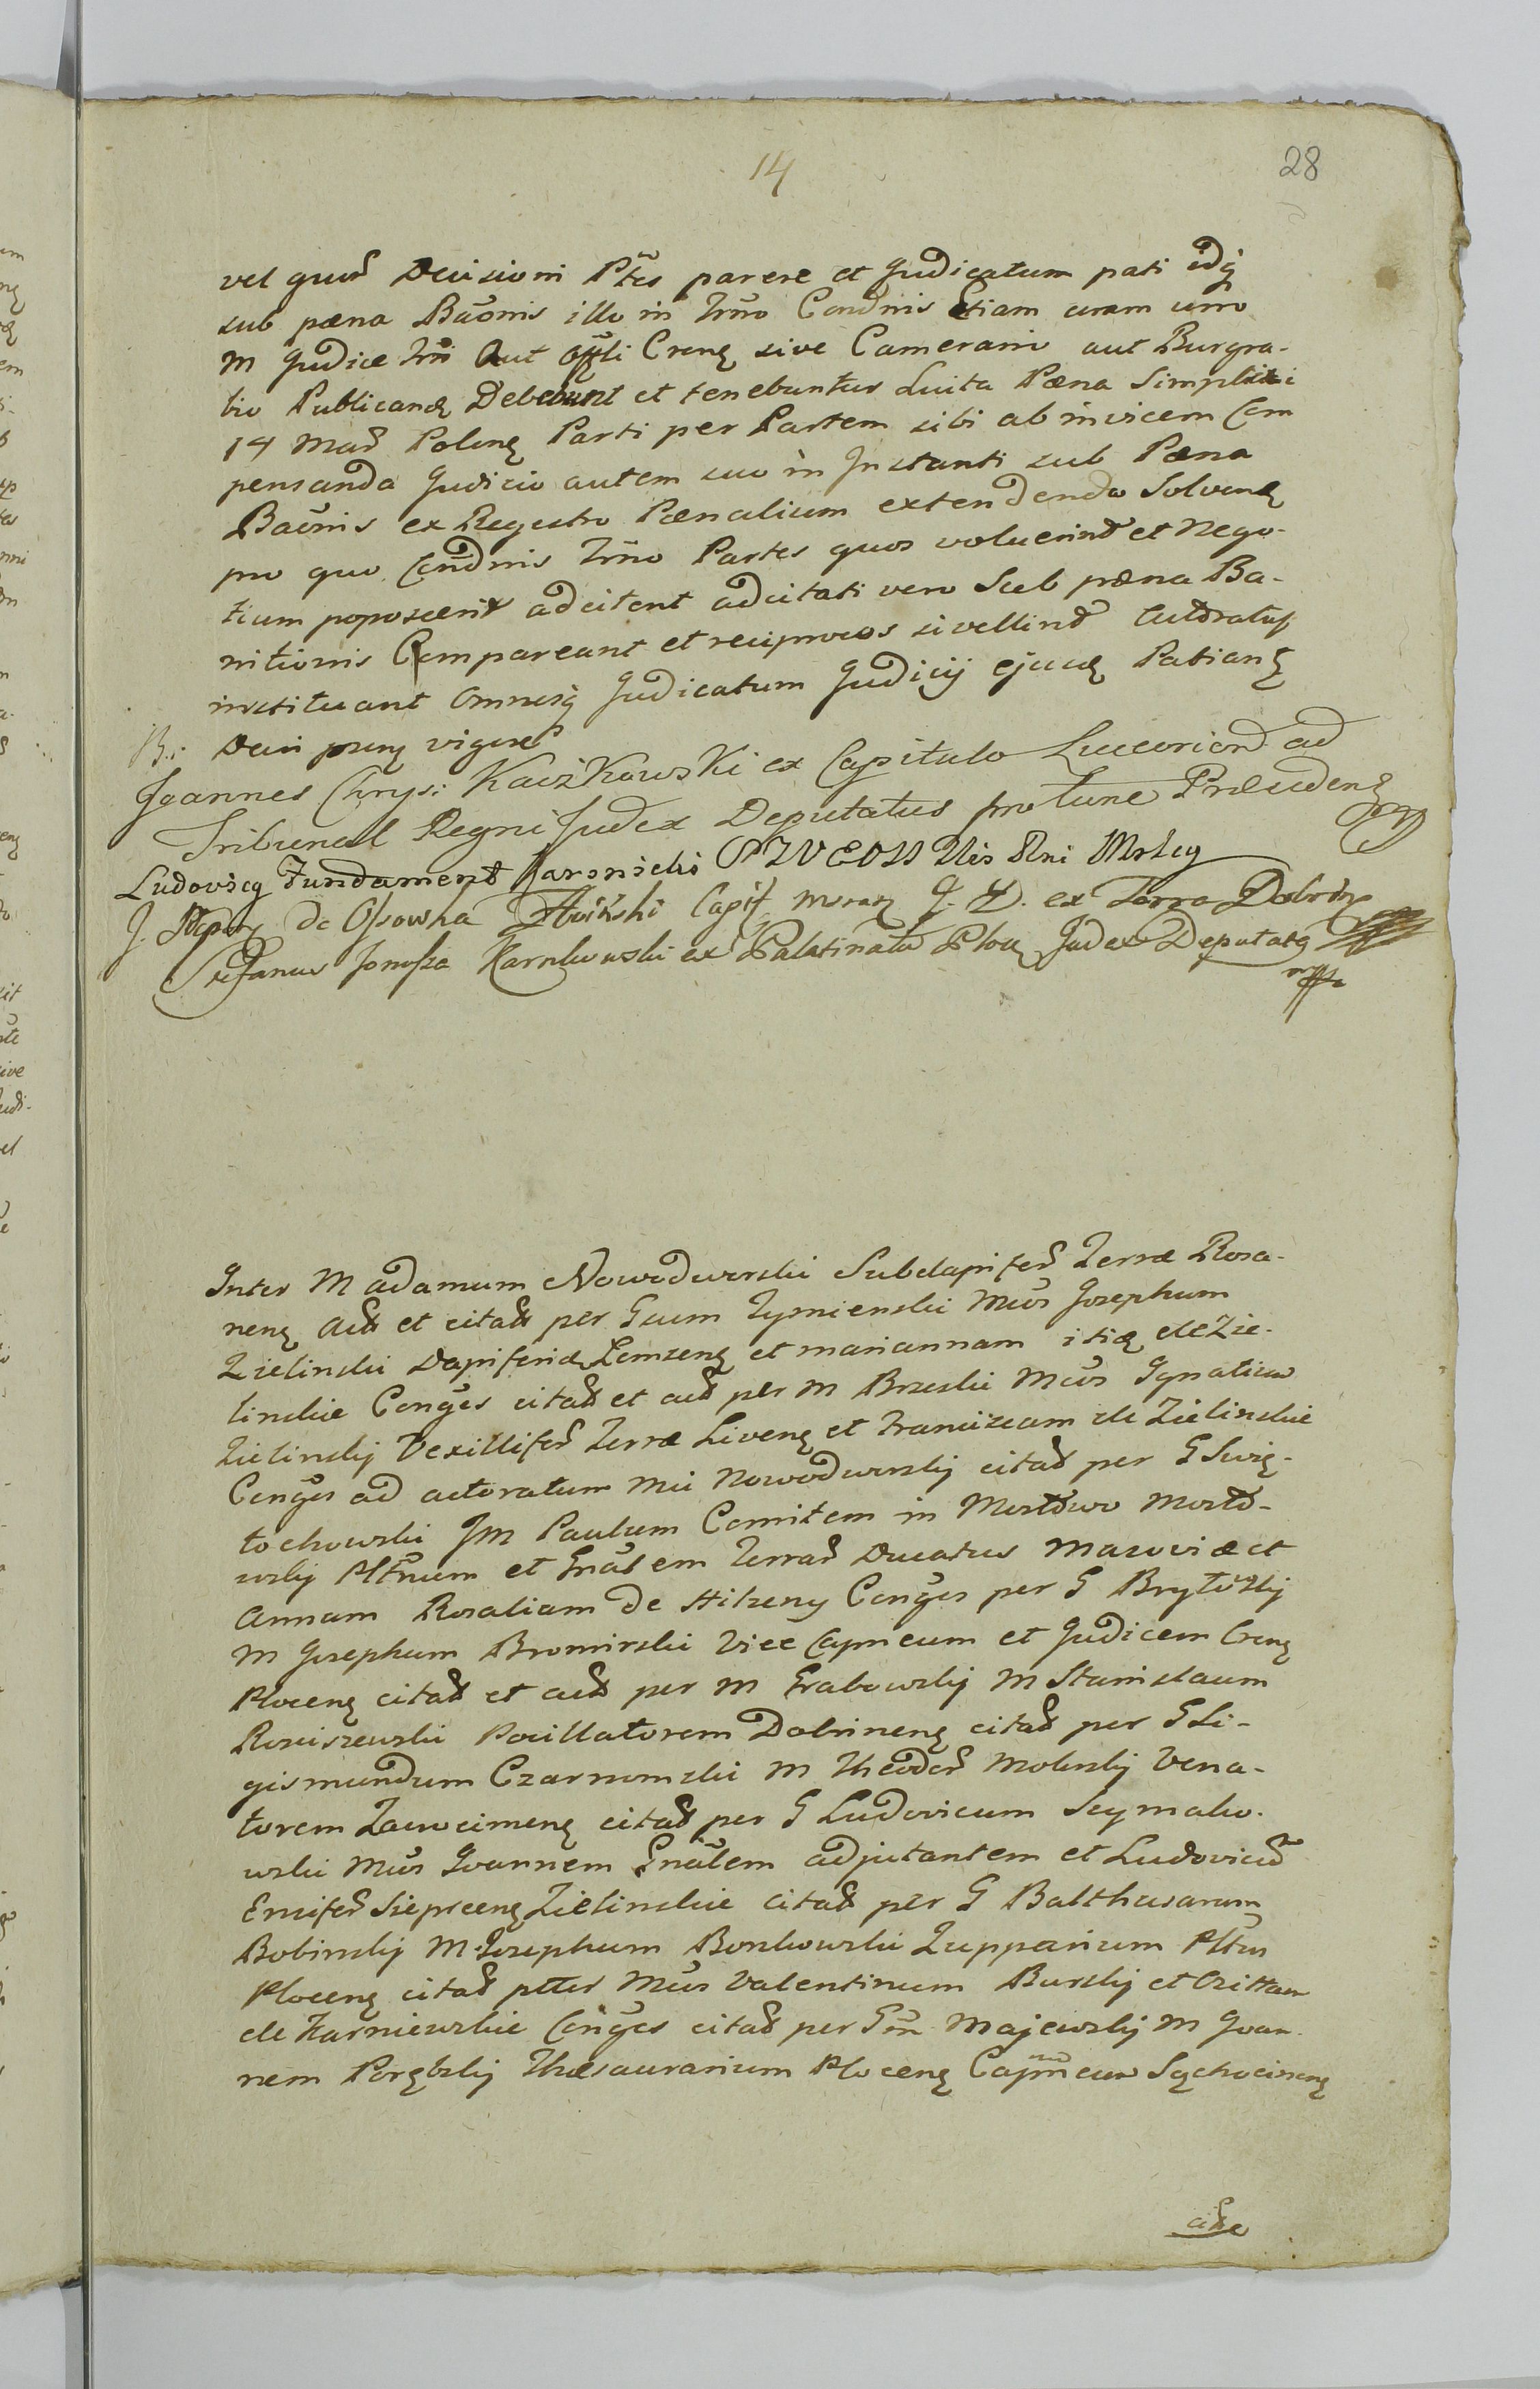 14
28
vel quor Decisioni Ptes parere et Judicatum pati idq
sub pæna Baonis illo in Trno Condnis Etiam coram uno
M Judice Trii Aut Offli Crenę sive Camerario aut Burgra-
bio Publicandę Debebunt et tenebuntur Luita Pæna Simplici
14 Mar Polonę Parti per Partem sibi ab invicem Com
pensanda Judicio autem suo in Instanti sub Pæna
Baonis ex Regestro Pænalium extendenda Solvenda
pro quo Condnis Trno Partes quos voluerint et Nego-
tium poposcerit adcitent adcitati vero Sub pæna Ba-
nitionis Compareant et reciprocos si vellint Actoratus
instituant Omnesq Judicatum Judicij ejusdę Patiantę
B: Decri prnę vigore
Joannes Chrys: Kaczkowski ex Capitulo Luceorien ad
Tribunal Regni Judex Deputatus pro tunc Præsidens
Ludovicq Fundament Karsnicki
J. de Ossowka Zboinski Capit J. D. ex Terra Dobrz
Stefanus Junosza Karnkowski ex Palatinatu Ploc Judex Deputatq
mppa
Inter M Adamum Nowodworski Subdapifer Terræ Rosa-
nenę Act et citat per Gsum Zymienski Mcos Josephum
Zielinski Dapiferidę Lomzenę et Mariannam itidę de Zie-
linskie Conges citat et act per M Brzeski Mcos Ignatium
Zielinskij Vexillifer Terræ Livenę et Franciscam de Zielinskie
Conges ad actoratum Mci Nowodworskij citat per G Swię-
tochowski JM Paulum Comitem in Mostowo Mosto-
wskij Pltnum et Gnalem Terrar Ducatus Masoviæ et
Annam Rosaliam de Hilzeny Conges per G Brytoskij
M Josephum Bromirski Vice Capneum et Judicem Crenę
Plocenę citat et act per M Grabowskij M Stanislaum
Rosciszewski Pocillatorem Dobrinenę citat per G Si-
gismundum Czarnomski M Theodor Mokrskij Vena-
torem Zawocimenę citat per G Ludovicum Szymako-
wski Mcos Joannem Gnalem Adjutantem et Ludovicu
Ensifer Sieprcenę Zielinskie citat per G Balthasarum
Bobinskij M Josephum Bonkowski Zupparium Pltus
Plocenę citat per Mcos Valentinum Burskij et
de Karniewskie Conges citat per Gm Majewskij M Joan-
nem Porębskij Thesaurarium Plocenę Capneum Sąchocinenę